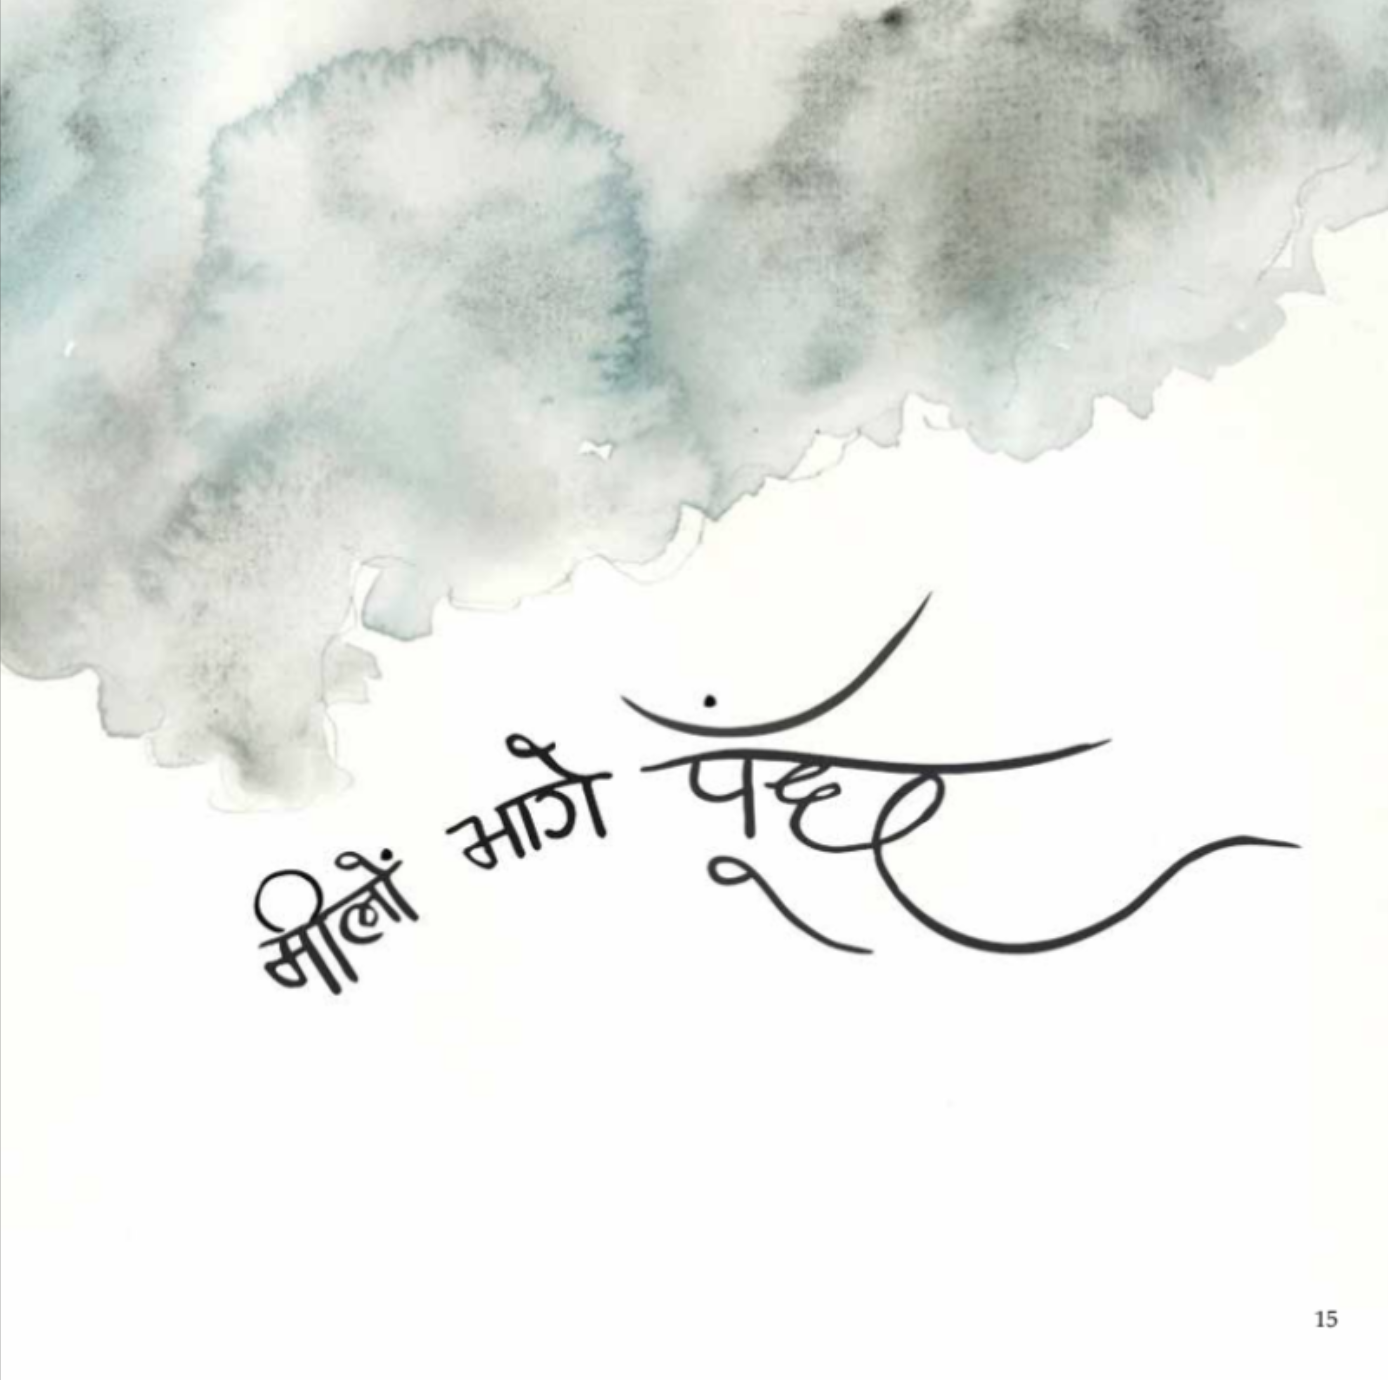 मीलों भागे पूँछ
15